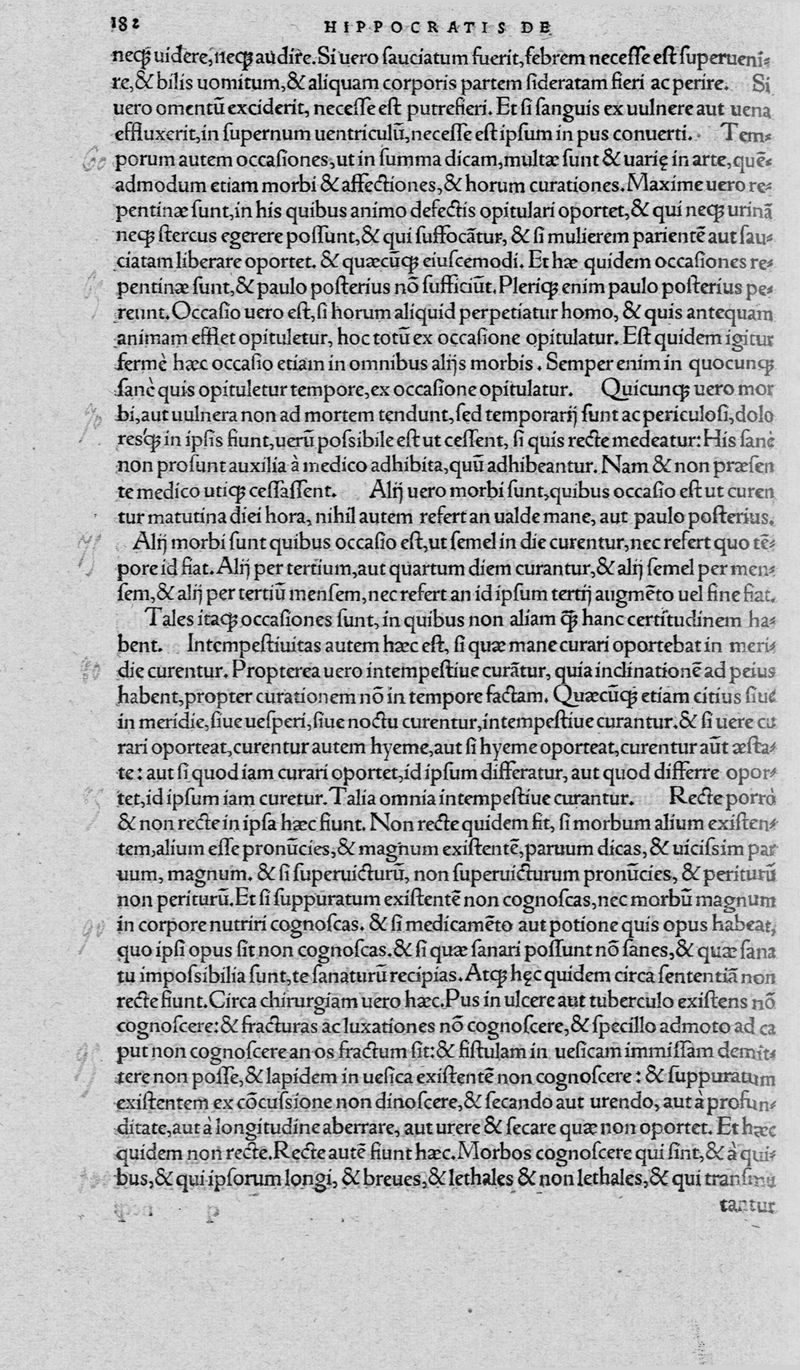 182 HIPPOCRATIS DE
neqꝫ uidere, neqꝫ audire. Si uero ſauciatum fuerit, febrem neceſſe eſt ſuperueni⸗
re, & bilis uomitum, & aliquam corporis partem ſideratam fieri ac perire. Si
uero omentũ exciderit, neceſſe eſt putrefieri. Et ſi ſanguis ex uulnere aut uena
effluxerit, in ſupernum uentriculũ, neceſſe eſt ipſum in pus conuerti. Tem⸗
porum autem occaſiones, ut in ſumma dicam, multæ ſunt & uarię in arte, quẽ⸗
admodum etiam morbi & affectiones, & horum curationes. Maxime uero re⸗
pentinæ ſunt, in his quibus animo defectis opitulari oportet, & qui neqꝫ urinã
neqꝫ ſtercus egerere poſſunt, & qui ſuffocãtur, & ſi mulierem parientẽ aut ſau⸗
ciatam liberare oportet. & quæcũqꝫ eiuſcemodi. Et hæ quidem occaſiones re⸗
pentinæ ſunt, & paulo poſterius nõ ſufficiũt. Pleriqꝫ enim paulo poſterius pe⸗
reunt. Occaſio uero eſt, ſi horum aliquid perpetiatur homo, & quis antequam
animam efflet opituletur, hoc totũ ex occaſione opitulatur. Eſt quidem igitur
fermè hæc occaſio etiam in omnibus alijs morbis. Semper enim in quocunqꝫ
ſanè quis opituletur tempore, ex occaſione opitulatur. Quicunqꝫ uero mor
bi, aut uulnera non ad mortem tendunt, ſed temporarij ſunt ac periculoſi, dolo
resqꝫ in ipſis fiunt, uerũ poſsibile eſt ut ceſſent, ſi quis recte medeatur: His ſanè
non proſunt auxilia à medico adhibita, quũ adhibeantur. Nam & non præſen
te medico utiqꝫ ceſſaſſent. Alij uero morbi ſunt, quibus occaſio eſt ut curen
tur matutina diei hora, nihil autem refert an ualde mane, aut paulo poſterius.
Alij morbi ſunt quibus occaſio eſt, ut ſemel in die curentur, nec refert quo tẽ⸗
pore id fiat. Alij per tertium, aut quartum diem curantur, & alij ſemel per men⸗
ſem, & alij per tertiũ menſem, nec refert an id ipſum tertij augmẽto uel fine fiat.
Tales itaqꝫ occaſiones ſunt, in quibus non aliam q̃ꝫ hanc certitudinem ha⸗
bent. Intempeſtiuitas autem hæc eſt, ſi quæ mane curari oportebat in meri⸗
die curentur. Propterea uero intempeſtiue curãtur, quia inclinationẽ ad peius
habent, propter curationem nõ in tempore factam. Quæcũqꝫ etiam citius ſiue
in meridie, ſiue ueſperi, ſiue noctu curentur, intempeſtiue curantur. & ſi uere cu
rari oporteat, curentur autem hyeme, aut ſi hyeme oporteat, curentur aũt æſta⸗
te: aut ſi quod iam curari oportet, id ipſum differatur, aut quod differre opor⸗
tet, id ipſum iam curetur. Talia omnia intempeſtiue curantur. Recte porrò
& non recte in ipſa hæc fiunt. Non recte quidem fit, ſi morbum alium exiſten⸗
tem, alium eſſe pronũcies, & magnum exiſtentẽ, paruum dicas, & uiciſsim par
uum, magnum. & ſi ſuperuicturũ, non ſuperuicturum pronũcies, & periturũ
non periturũ. Et ſi ſuppuratum exiſtentẽ non cognoſcas, nec morbũ magnum
in corpore nutriri cognoſcas. & ſi medicamẽto aut potione quis opus habeat,
quo ipſi opus ſit non cognoſcas. & ſi quæ ſanari poſſunt nõ ſanes, & quæ ſana
tu impoſsibilia ſunt, te ſanaturũ recipias. Atqꝫ hęc quidem circa ſententiã non
recte fiunt. Circa chirurgiam uero hæc. Pus in ulcere aut tuberculo exiſtens nõ
cognoſcere: & fracturas ac luxationes nõ cognoſcere, & ſpecillo admoto ad ca
put non cognoſcere an os fractum ſit: & fiſtulam in ueſicam immiſſam demit⸗
tere non poſſe, & lapidem in ueſica exiſtentẽ non cognoſcere: & ſuppuratum
exiſtentem ex cõcuſsione non dinoſcere, & ſecando aut urendo, aut à profun⸗
ditate, aut à longitudine aberrare, aut urere & ſecare quæ non oportet. Et hæc
quidem non recte. Recte autẽ fiunt hæc. Morbos cognoſcere qui ſint, & à qui⸗
bus, & qui ipſorum longi, & breues, & lethales & non lethales, & qui tranſmu
tantur